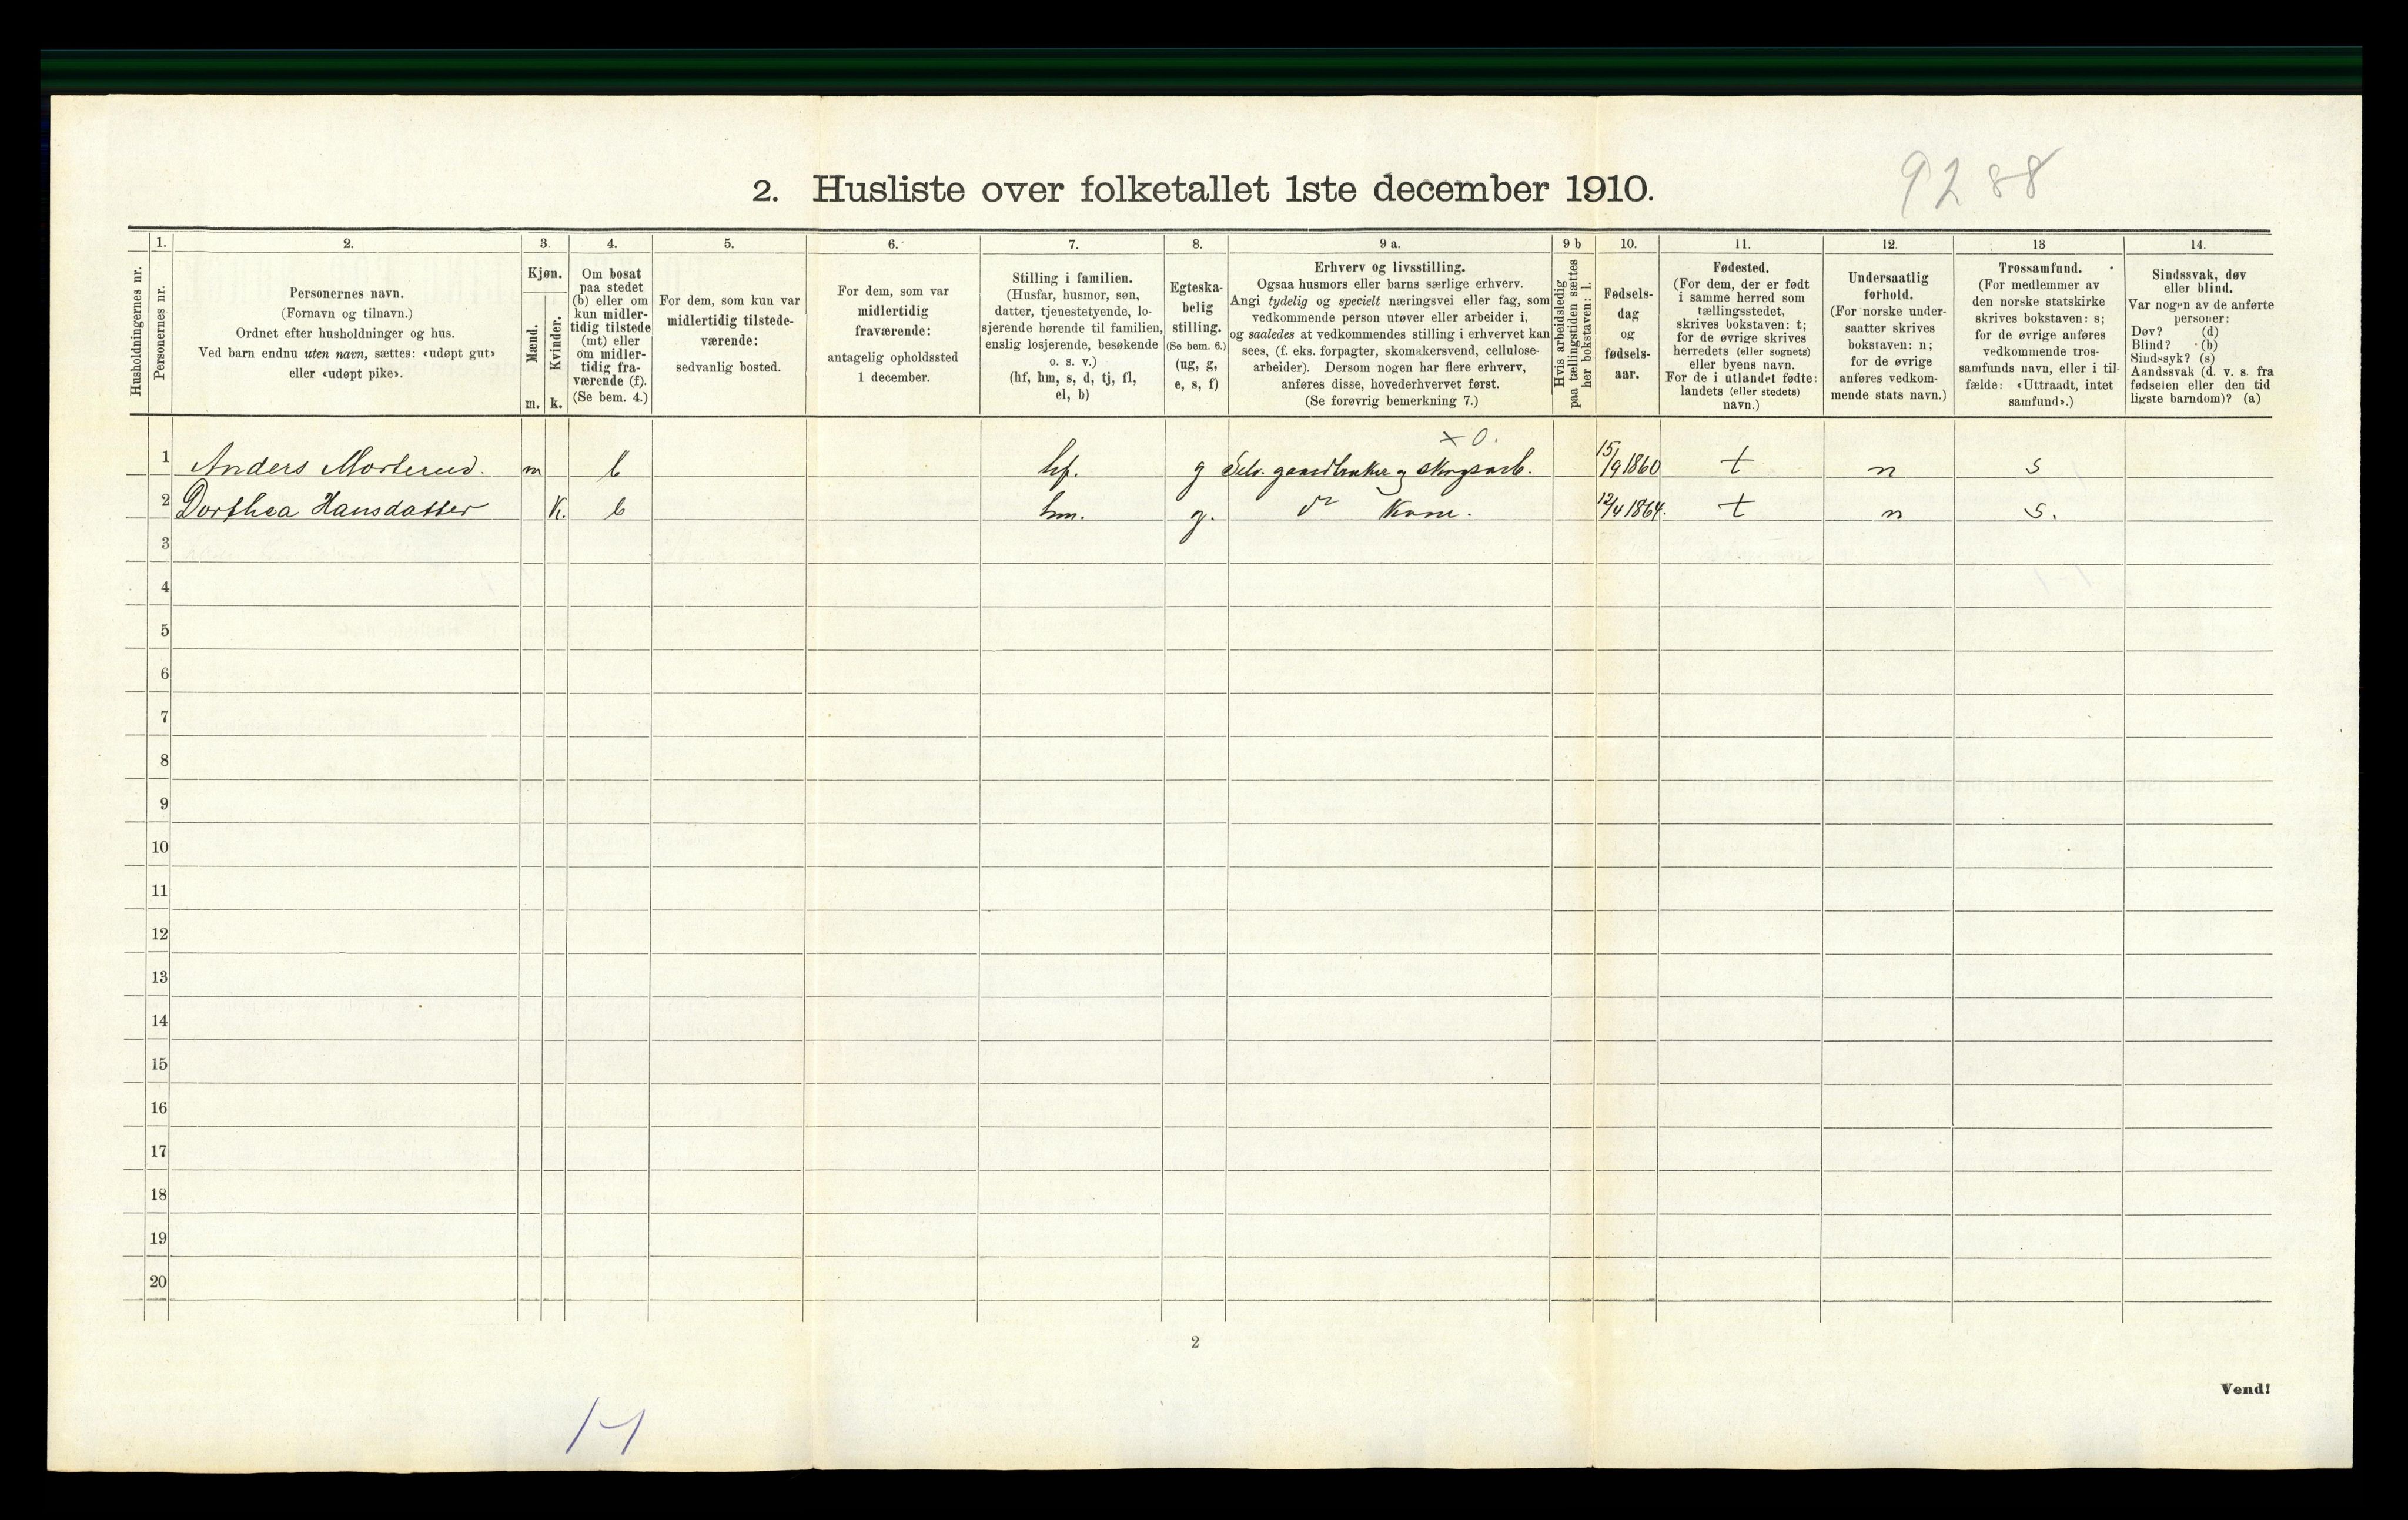 9288
2. Husliste over folketallet 1ste december 1910.
Husholdningernes nr.
1.
Personernes nr.
2.
Personernes navn.
(Fornavn og tilnavn.)
Ordnet efter husholdninger og hus.
Ved barn endnu uten navn, sættes: «udøpt gut»
eller «udøpt pike».
3.
Kjøn.
Mænd.
Kvinder.
m. k.
4.
Om bosat
paa stedet
(b) eller om
kun midler-
tidig tilstede
(mt) eller
om midler-
tidig fra-
værende (f).
(Se bem. 4.)
5.
For dem, som kun var
midlertidig tilstede-
værende:
sedvanlig bosted.
6.
For dem, som var
midlertidig
fraværende:
antagelig opholdssted
1 december.
7.
Stilling i familien.
(Husfar, husmor, søn,
datter, tjenestetyende, lo-
sjerende hørende til familien,
enslig losjerende, besøkende
o. s. v.)
(hf, hm, s, d, tj, fl,
el, b)
8.
Egteska-
belig
stilling.
(Se bem. 6.)
(ug, g,
e, s, f)
9 a.
Erhverv og livsstilling.
Ogsaa husmors eller barns særlige erhverv.
Angi tydelig og specielt næringsvei eller fag, som
vedkommende person utøver eller arbeider i,
og saaledes at vedkommendes stilling i erhvervet kan
sees, (f. eks. forpagter, skomakersvend, cellulose-
arbeider). Dersom nogen har flere erhverv,
anføres disse, hovederhvervet først.
(Se forøvrig bemerkning 7.)
9 b
Hvis arbeidsledig
paa tællingstiden sættes
her bokstaven: l.
10.
Fødsels-
dag
og
fødsels-
aar.
11.
Fødested.
(For dem, der er født
i samme herred som
tællingsstedet,
skrives bokstaven: t;
for de øvrige skrives
herredets (eller sognets)
eller byens navn.
For de i utlandet fødte:
landets (eller stedets)
navn.)
12.
Undersaatlig
forhold.
(For norske under-
saatter skrives
bokstaven: n;
for de øvrige
anføres vedkom-
mende stats navn.)
13
Trossamfund.
(For medlemmer av
den norske statskirke
skrives bokstaven: s;
for de øvrige anføres
vedkommende tros-
samfunds navn, eller i til-
fælde: «Uttraadt, intet
samfund».)
14.
Sindssvak, døv
eller blind.
Var nogen av de anførte
personer:
Døv? (d)
Blind? (b)
Sindssyk? (s)
Aandssvak (d. v. s. fra
fødselen eller den tid
ligste barndom)? (a)
x 0.
1 Anders Morterud. m b hf. g Selv. gaardbruker og skogsarb. 15/9 1860 t n s
2 Dorthea Hansdatter K. b hm. g. do Kone. 12/4 1864. t n s.
3
4
5
6
7
8
9
10
11
12
13
14
15
16
17
18
19
20
2
Vend!